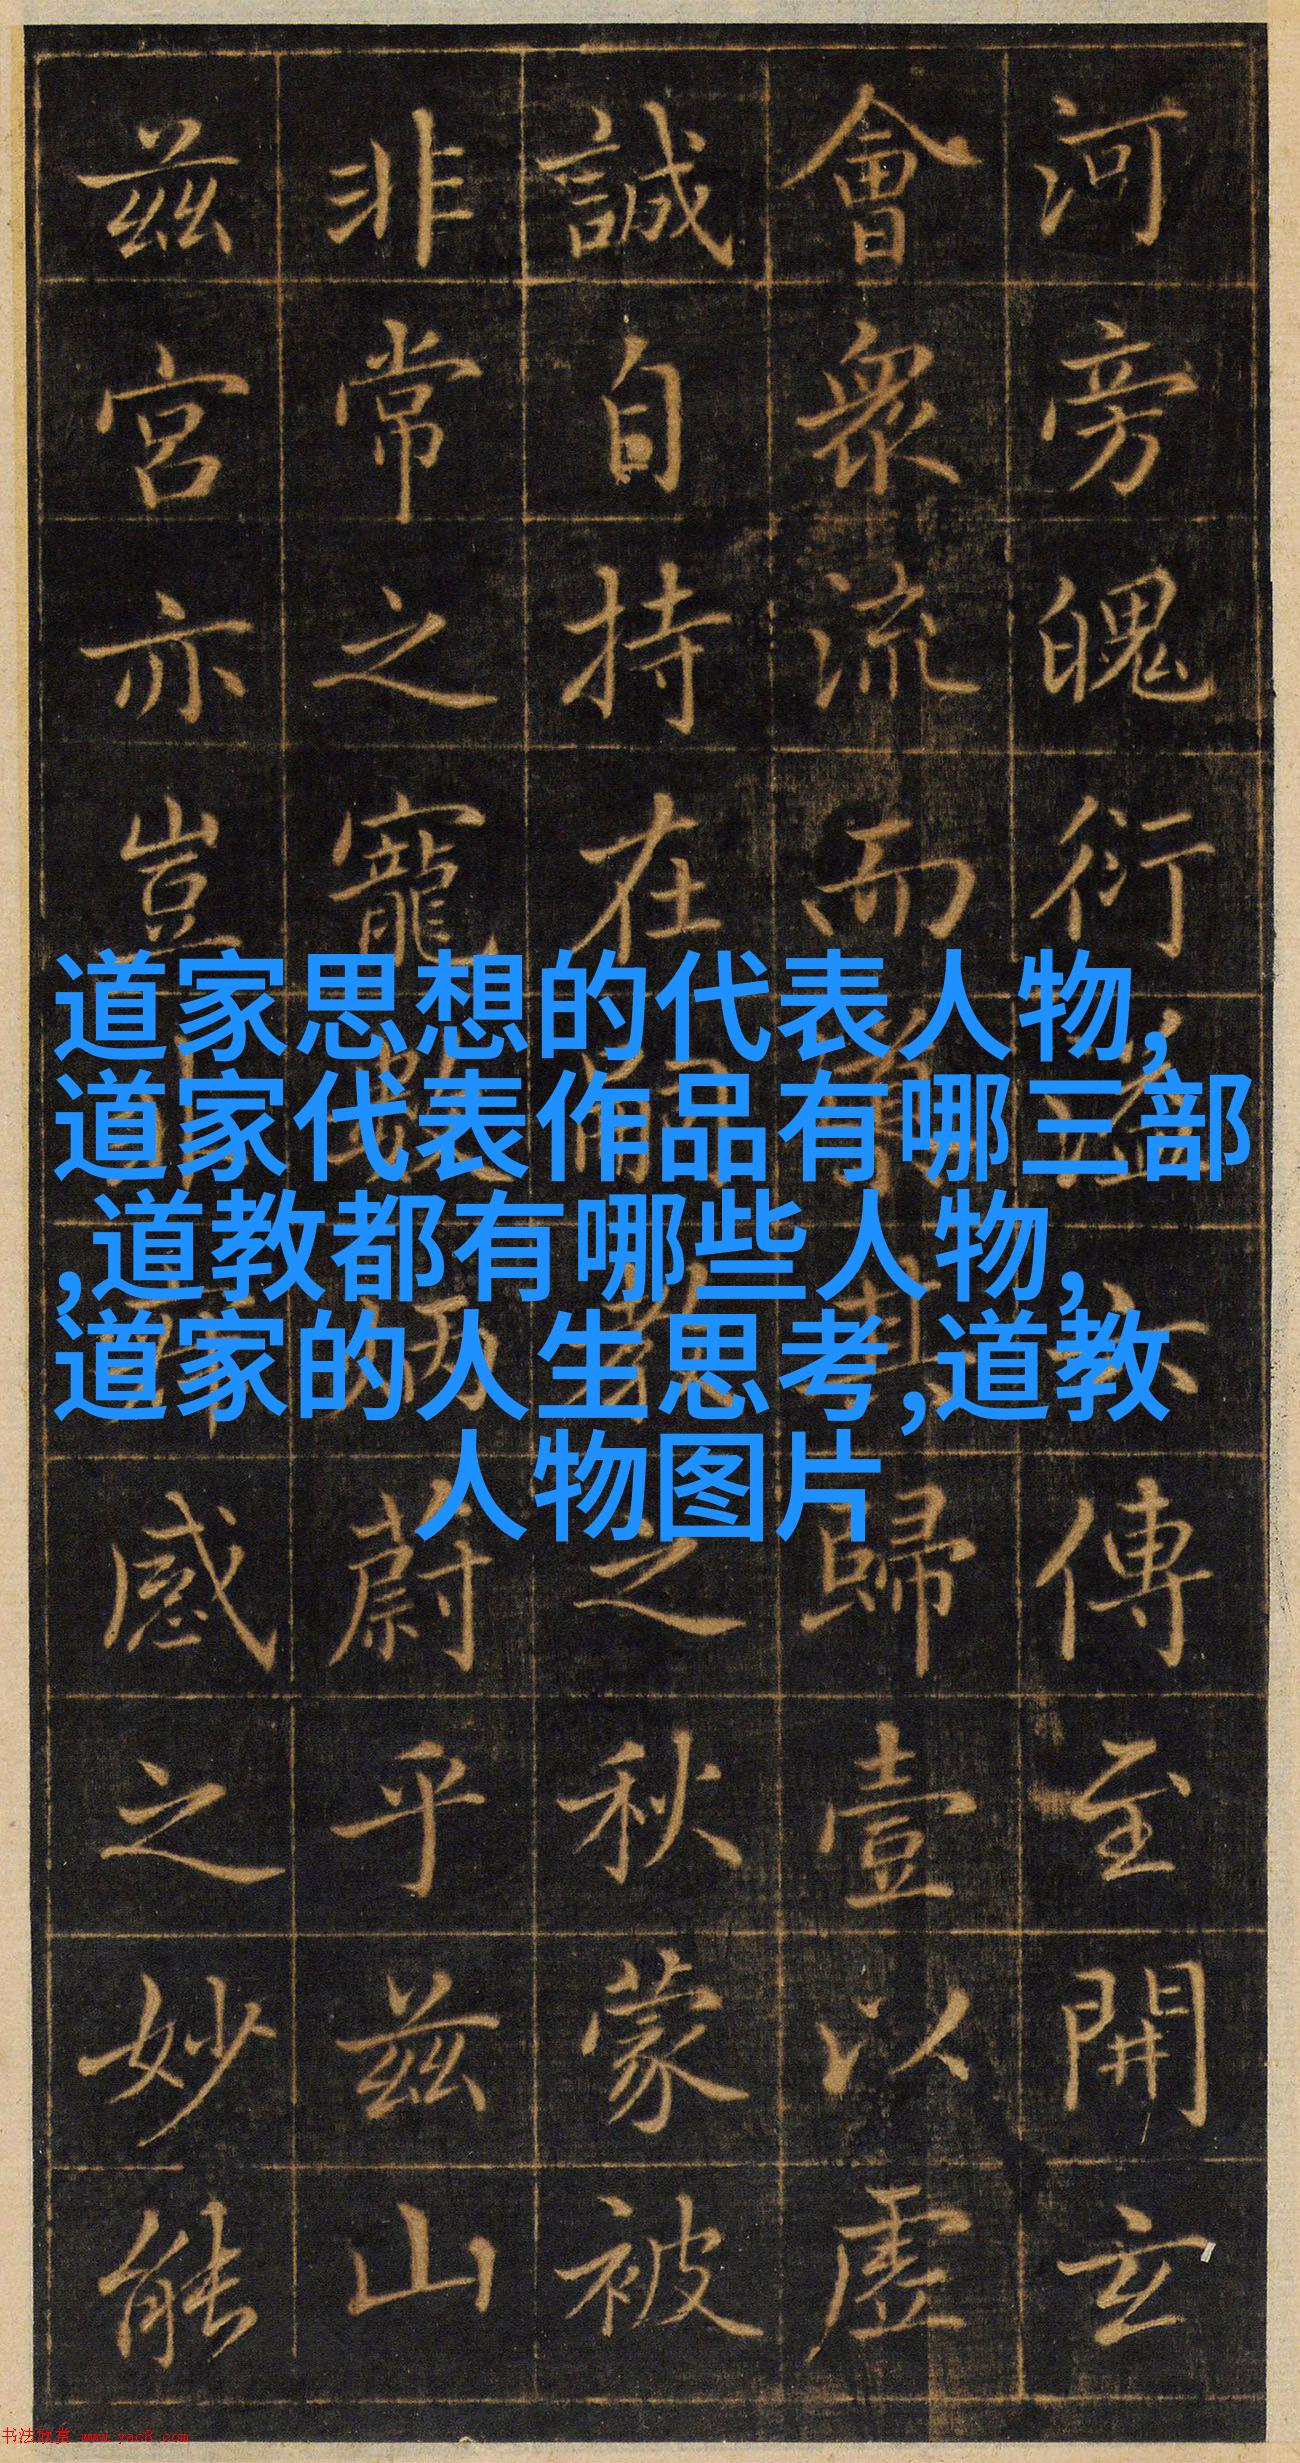 河旁魄衍傳至開玄
會衆流而歸壹以虛
誠自持在之秋蒙被
非常之寵蔚乎茲山
茲宮亦豈感之妙能
道家思想的代表人物,
道家代表作品有哪三部
,道教都有哪些人物,
道家的人生思考,道教
人物图片
书法欣赏 www.yac8.com